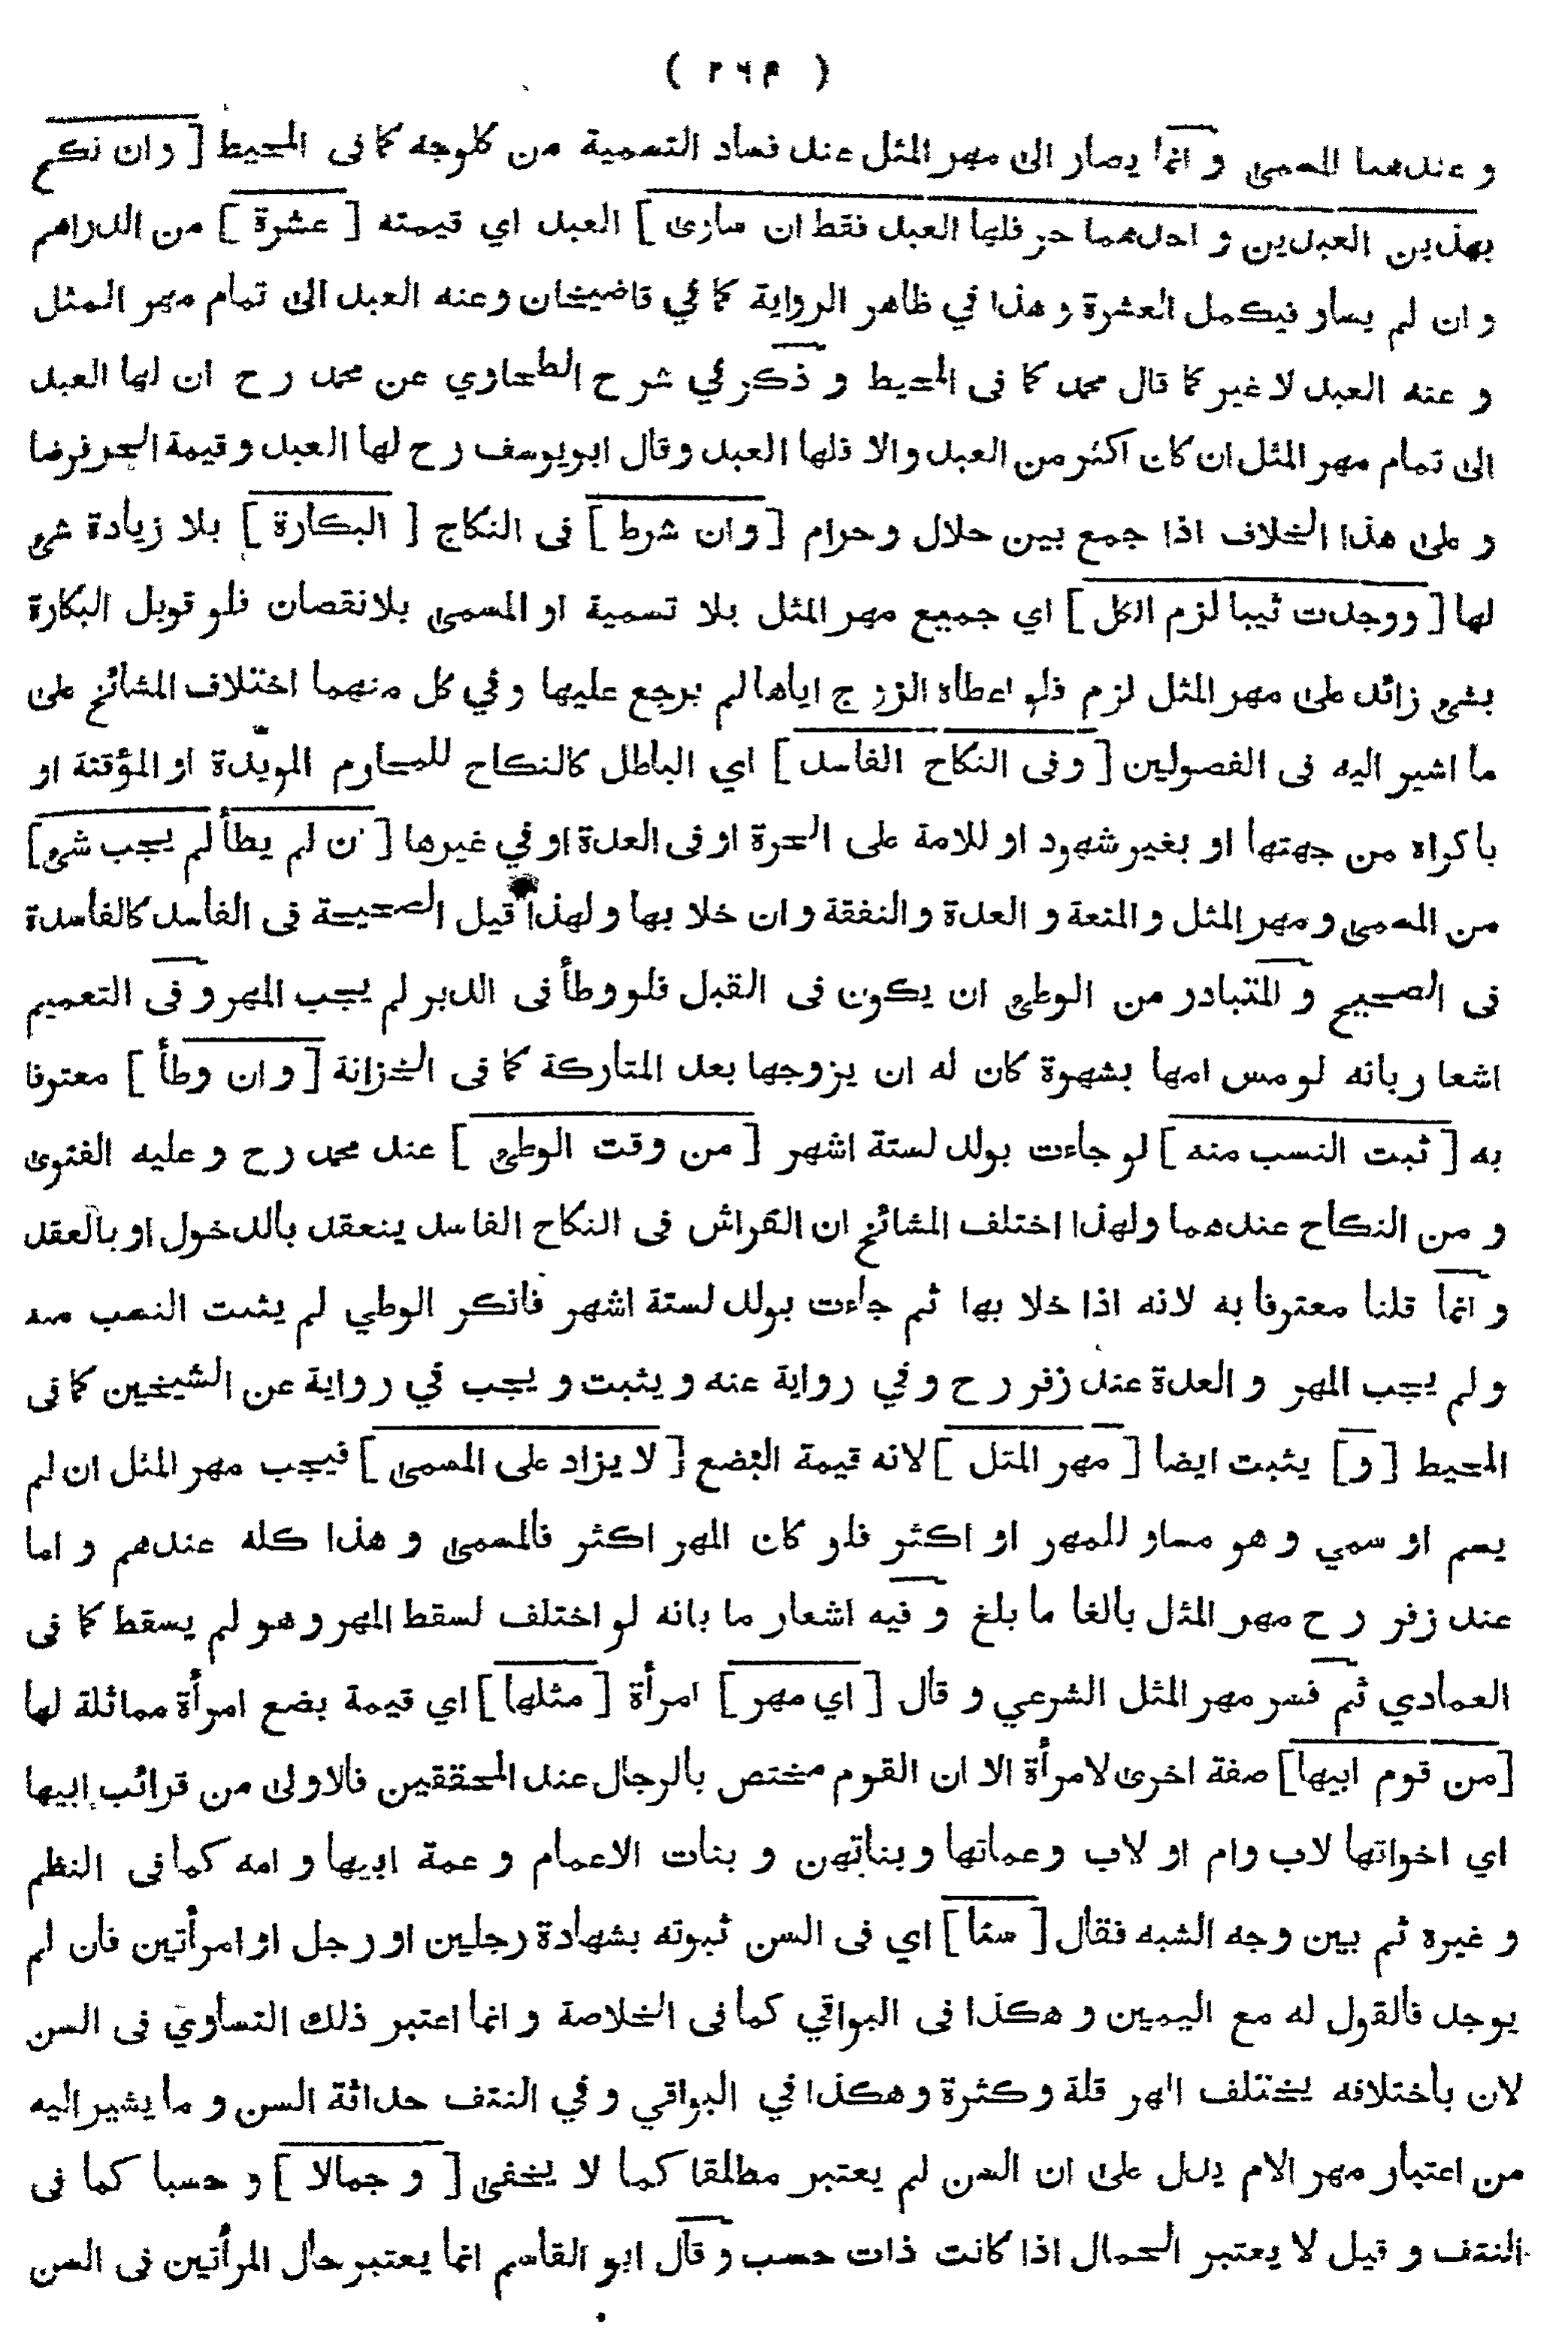 ( ٢٦٤ )
و عندهما المسمى و انما يصار الى مهر المثل عند فساد التسمية من كلوجه كما فى المحيط [ و ان نكح
بهذين العبدين و احدهما حر فلها العبد فقط ان ساوى ] العبد اي قيمته [ عشرة ] من الدراهم
و ان لم يساو فيكمل العشرة و هذا في ظاهر الرواية كما في قاضيخان و عنه العبد الى تمام مهر المثل
و عنه العبد لا غير كما قال محمد كما فى المحيط و ذكر في شرح الطحاوي عن محمد رح ان لها العبد
الى تمام مهر المثل ان كان اكثر من العبد والا فلها العبد وقال ابويوسف رح لها العبد و قيمة الحر فرضا
و على هذا الخلاف اذا جمع بين حلال و حرام [ و ان شرط ] فى النكاح [ البكارة ] بلا زيادة شئ
لها [ ووجدت ثيبا لزم الكل ] اي جميع مهر المثل بلا تسمية او المسمى بلانقصان فلو قوبل البكارة
بشئ زائد على مهر المثل لزم فلو اعطاه الزوج اياها لم يرجع عليها و في كل منهما اختلاف المشائخ على
ما اشير اليه فى الفصولين [ و فى النكاح الفاسد ] اي الباطل كالنكاح للمحارم المويّدة او المؤقتة او
باكراه من جهتها او بغير شهود او للامة على الحرة او فى العدة او في غيرها [ ان لم يطأ لم يجب شئ ]
من المسمى و مهر المثل و المتعة و العدة و النفقة و ان خلا بها و لهذا قيل الصحيحة فى الفاسد كالفاسدة
فى الصحيح و المتبادر من الوطئ ان يكون فى القبل فلو وطأ فى الدبر لم يجب المهر و فى التعميم
اشعار بانه لو مس امها بشهوة كان له ان يزوجها بعد المتاركة كما فى الخزانة [ و ان وطأ ] معترفا
به [ ثبت النسب منه ] لو جاءت بولد لستة اشهر [ من وقت الوطئ ] عند محمد رح و عليه الفتوى
و من النكاح عندهما و لهذا اختلف المشائخ ان الفراش فى النكاح الفاسد ينعقد بالدخول او بالعقد
و انما قلنا معترفا به لانه اذا خلا بها ثم جاءت بولد لستة اشهر فانكر الوطي لم يثبت النسب منه
و لم يجب المهر و العدة عند زفر رح و في رواية عنه و يثبت و يجب في رواية عن الشيخين كما فى
المحيط [ و ] يثبت ايضا [ مهر المثل ] لانه قيمة البُضع [ لا يزاد على المسمى ] فيجب مهر المثل ان لم
يسم او سمي و هو مساو للمهر او اكثر فلو كان المهر اكثر فالمسمى و هذا كله عندهم و اما
عند زفر رح مهر المثل بالغا ما بلغ و فيه اشعار ما بانه لو اختلف لسقط المهر و هو لم يسقط كما فى
العمادي ثم فسر مهر المثل الشرعي و قال [ اي مهر ] امرأة [ مثلها ] اي قيمة بضع امرأة مماثلة لها
[ من قوم ابيها ] صفة اخرى لامرأة الا ان القوم مختص بالرجال عند المحققين فالاولى من قرائب ابيها
اي اخواتها لاب و ام او لاب و عماتها و بناتهن و بنات الاعمام و عمة ابيها و امه كما فى النظم
و غيره ثم بين وجه الشبه فقال [ سنّا ] اي فى السن ثبوته بشهادة رجلين او رجل او امرأتين فان لم
يوجد فالقول له مع اليمين و هكذا فى البواقي كما فى الخلاصة و انما اعتبر ذلك التساوي فى السن
لان باختلافه يختلف المهر قلة و كثرة و هكذا في البواقي و في النتف حداثة السن و ما يشير اليه
من اعتبار مهر الام يدل على ان السن لم يعتبر مطلقا كما لا يخفى [ و جمالا ] و حسبا كما فى
النتف و قيل لا يعتبر الجمال اذا كانت ذات حسب و قال ابو القاسم انما يعتبر حال المرأتين فى السن